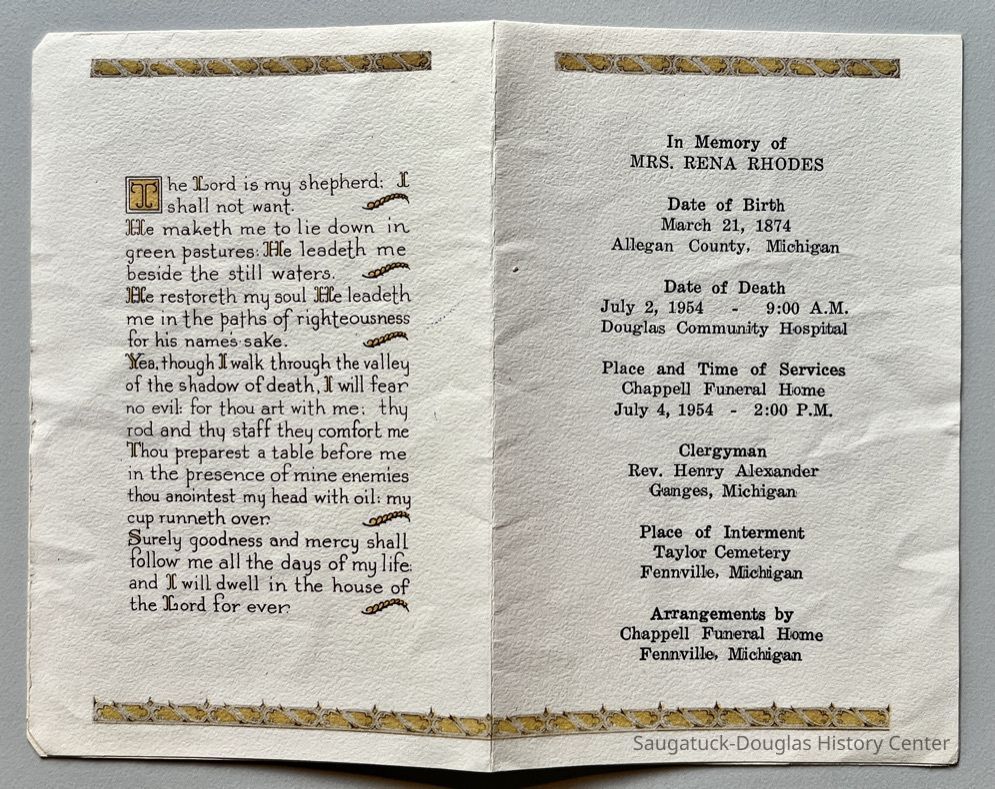 The Lord is my shepherd: I
shall not want.
He maketh me to lie down in
green pastures: He leadeth me
beside the still waters.
He restoreth my soul He leadeth
me in the paths of righteousness
for his name's sake.
Yea, though I walk through the valley
of the shadow of death, I will fear
no evil: for thou art with me; thy
rod and thy staff they comfort me
Thou preparest a table before me
in the presence of mine enemies
thou anointest my head with oil: my
cup runneth over.
Surely goodness and mercy shall
follow me all the days of my life:
and I will dwell in the house of
the Lord for ever.
In Memory of
MRS. RENA RHODES
Date of Birth
March 21, 1874
Allegan County, Michigan
Date of Death
July 2, 1954 - 9:00 A.M.
Douglas Community Hospital
Place and Time of Services
Chappell Funeral Home
July 4, 1954 - 2:00 P.M.
Clergyman
Rev. Henry Alexander
Ganges, Michigan
Place of Interment
Taylor Cemetery
Fennville, Michigan
Arrangements by
Chappell Funeral Home
Fennville, Michigan
Saugatuck-Douglas History Center